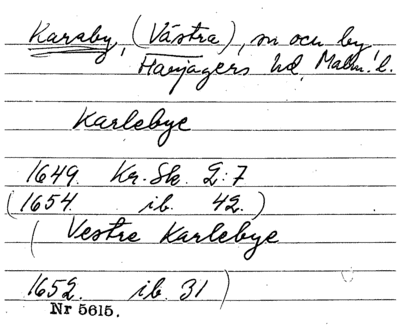 Karaby, (Västra), sn och by
Harjagers hd, Malm. l.
Karlebye
1649. Kr. Sk. 2:7
(1654. ib. 42.)
( Vestre Karlebye
1652. ib. 31 )
Nr 5615.